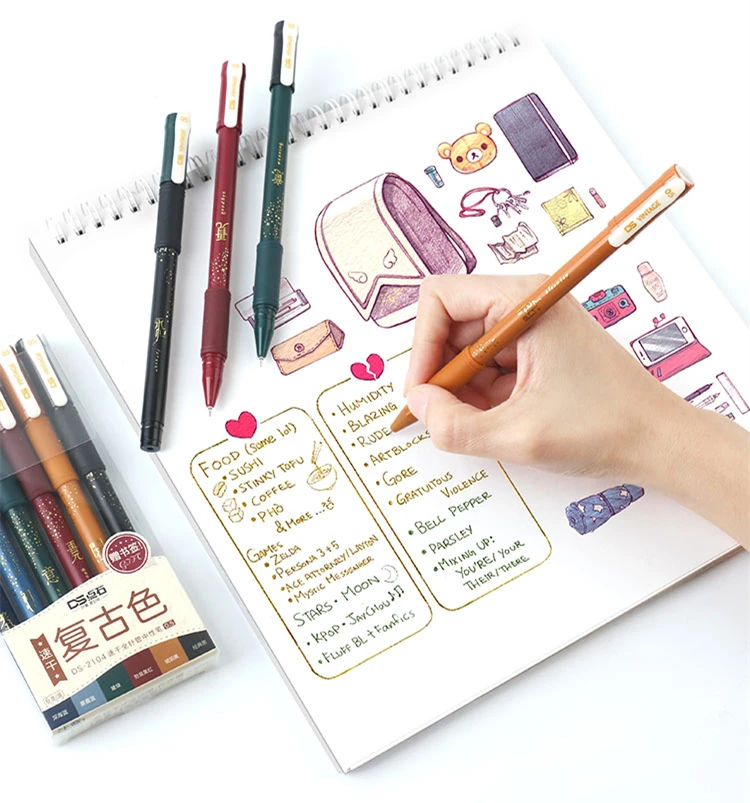 DS VINTAGE
HUMIDITY
BLAZING
RUDE
ARTBLOCKS
GORE
GRATUITOUS
VIOLENCE
BELL PEPPER
PARSLEY
MIXING UP:
YOU'RE/YOUR
THEIR/THERE
FOOD (some lol)
SUSHI
STINKY TOFU
COFFEE
PHỞ
& MORE...
GAMES
ZELDA
PERSONA 3+5
ACE ATTORNEY/LAYTON
MYSTIC MESSENGER
STARS · MOON
KPOP · JAY CHOU
FLUFF BL + Fanfics
赠书签
DS 点石
速干
复古色
DS-2104 速干全针管中性笔